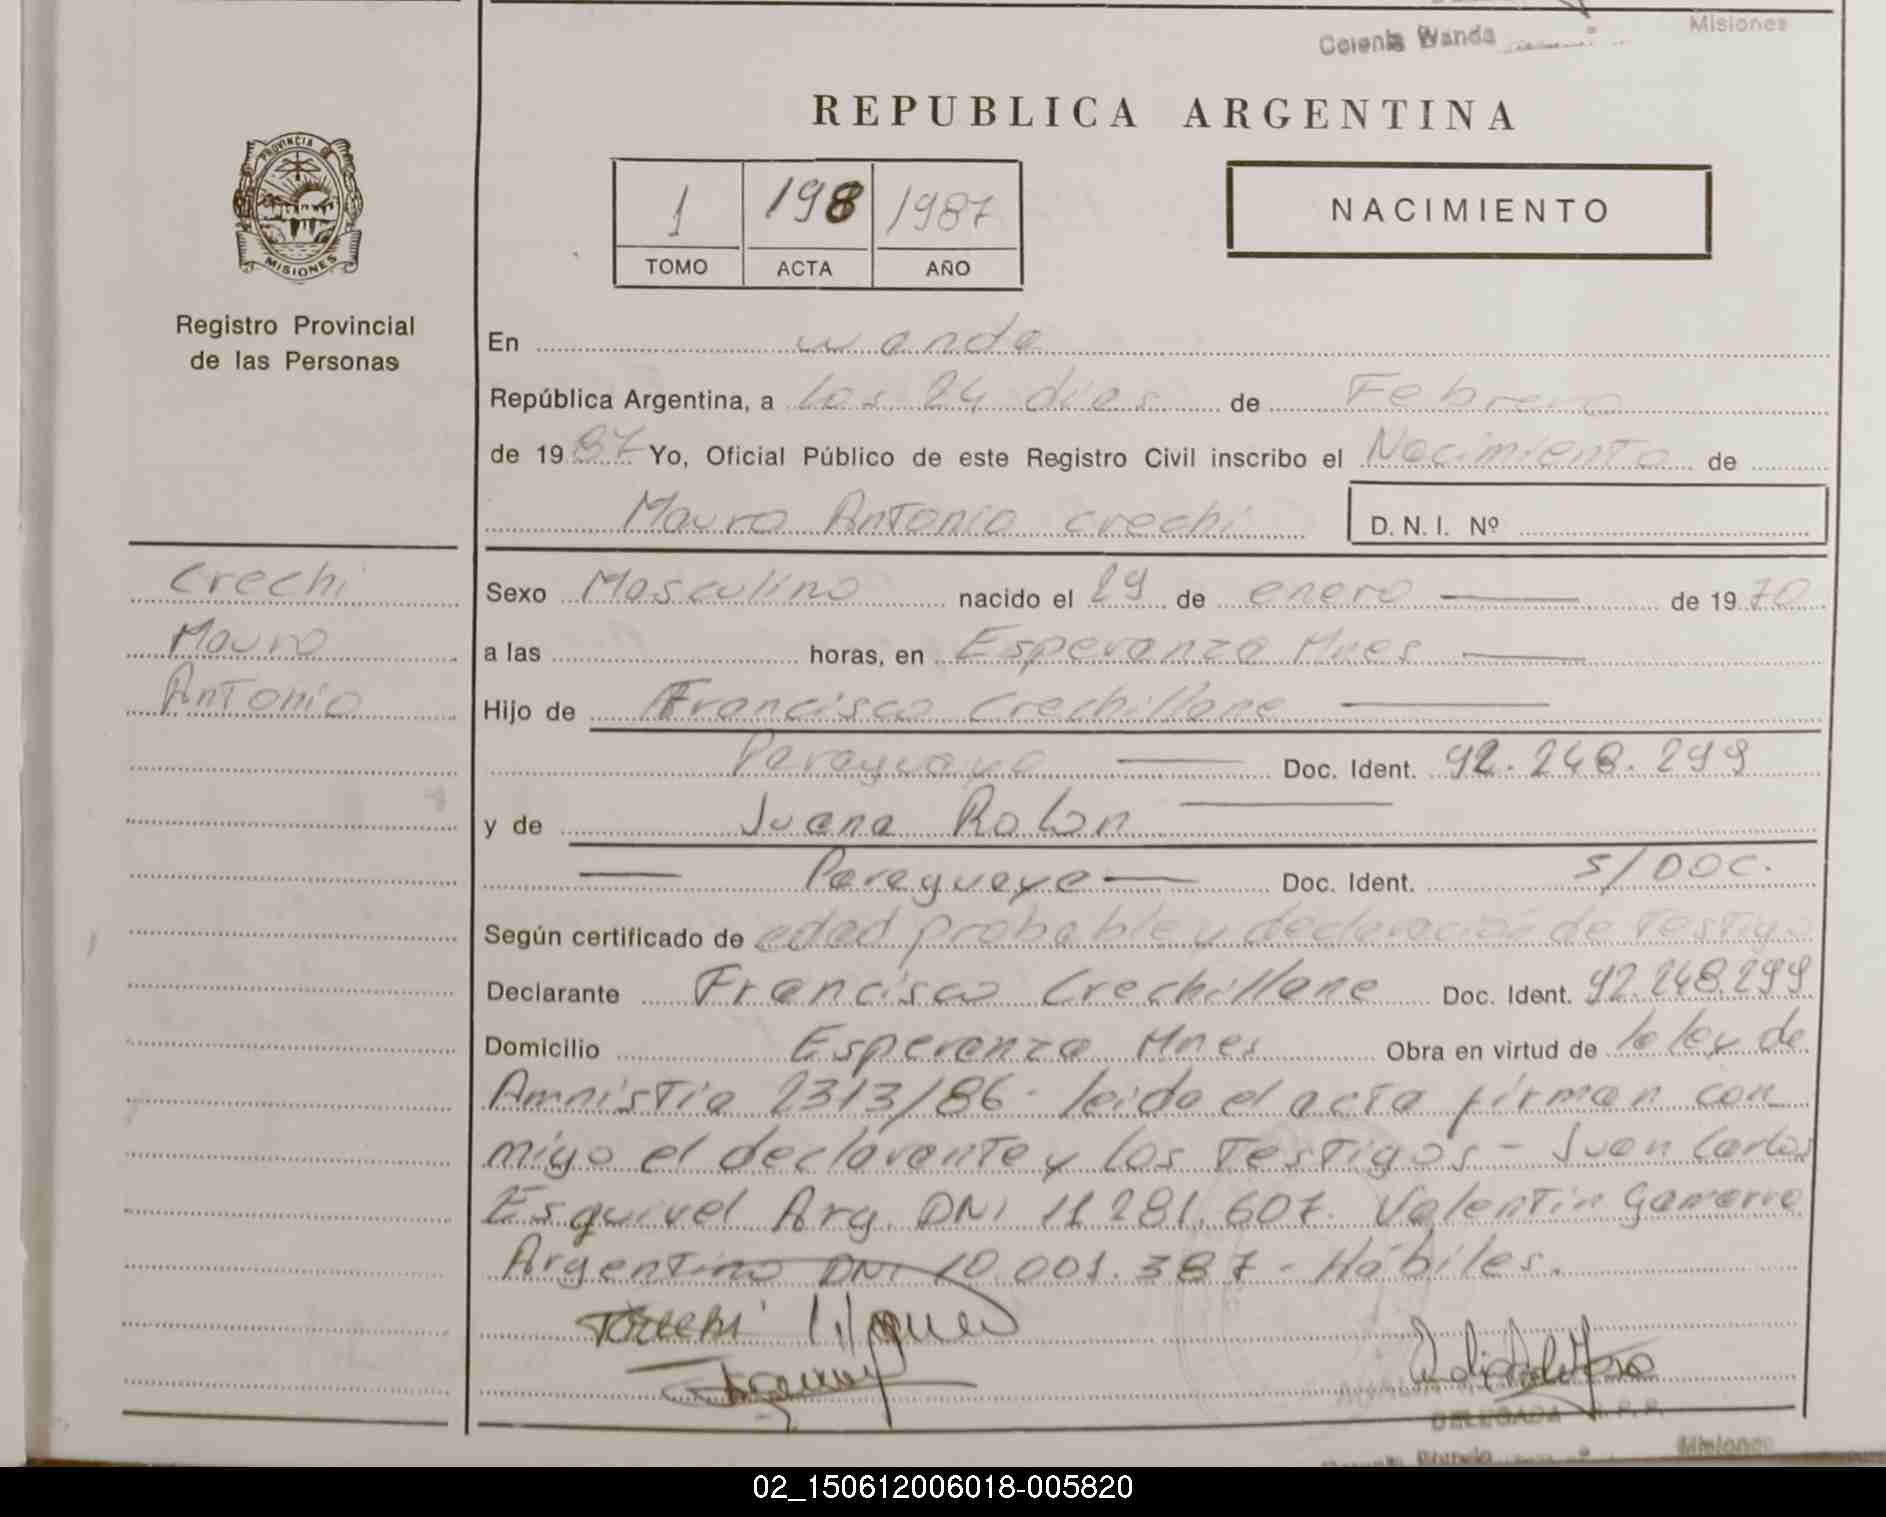 Colonia Wanda
Misiones
REPUBLICA ARGENTINA
PROVINCIA DE
MISIONES
1 198 1987
TOMO ACTA AÑO
NACIMIENTO
Registro Provincial
de las Personas
En Wanda
República Argentina, a los 24 días de Febrero
de 1987 Yo, Oficial Público de este Registro Civil inscribo el Nacimiento de
Mauro Antonio Crechi
D. N. I. Nº
Crechi
Mauro
Antonio
Sexo Masculino nacido el 29 de enero de 1970
a las horas, en Esperanza Mnes
Hijo de Francisco Crechillane
Paraguaya Doc. Ident. 92.248.299
y de Juana Rolon
Paraguaya Doc. Ident. S/DOC.
Según certificado de edad probable y declaración de Testigo
Declarante Francisco Crechillane Doc. Ident. 92.248.299
Domicilio Esperanza Mnes Obra en virtud de la ley de
Amnistia 2313/86 - leida el acta firman con
migo el declarante y los Testigos - Juan Carlos
Esquivel Arg. DNI 11.281.607. Valentin Gamarra
Argentino DNI 10.001.387 - Hábiles.
DELEGADA R. P. P.
Misiones
02_150612006018-005820